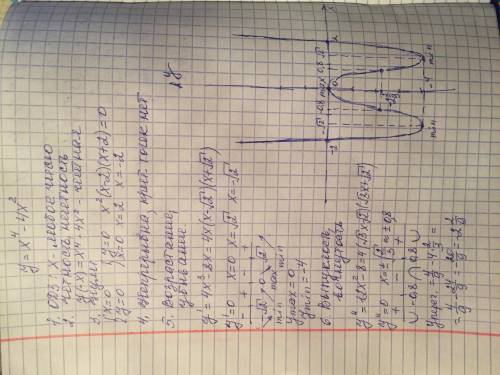 y = x⁴ - 4x²
1. ОДЗ x - любое число
2. Четность нечетность
y(-x) = x⁴ - 4x² - четная
3. Нули
{x=0 {y=0 x²(x-2)(x+2)=0
{y=0 {x=0 x=2 x=-2
4. Непрерывно, крит. точек нет
5. Возрастание,
убывание.
y' = 4x³ - 8x = 4x(x-√2)(x+√2)
y' = 0 x=0 x=√2 x=-√2
- + - +
-√2 0 √2
min max min
y max = 0
y min = -4
6. Выпуклость
вогнутость
y'' = 12x² - 8 = 4(√3x-√2)(√3x+√2)
y'' = 0 x = ±√(2/3) ≈ ±0,8
+ - +
∪ -0,8 ∩ 0,8 ∪
= 4/9 - 24/9 = -20/9 = -2 2/9
y
x
-2 -√2 -0,8 max 0,8 √2 2
0
-2 2/9
-4
min min